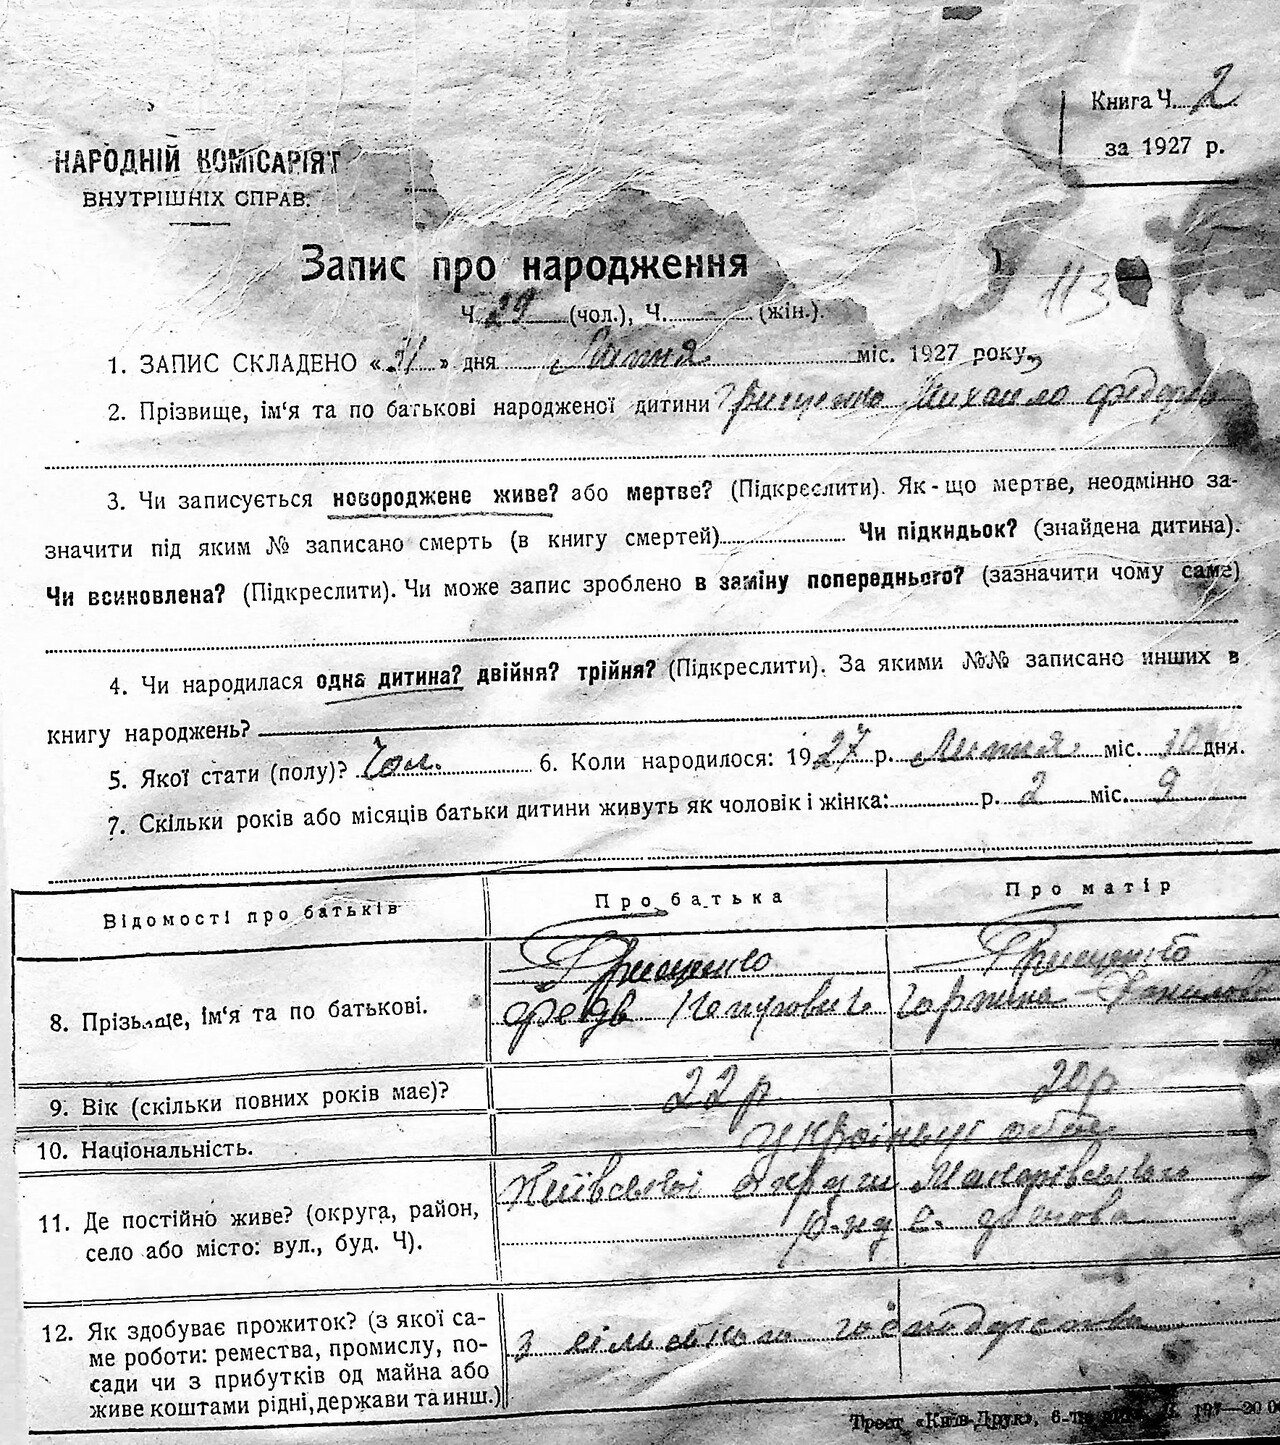 Книга Ч. 2
за 1927 р.
НАРОДНІЙ КОМІСАРІЯТ
ВНУТРІШНІХ СПРАВ.
Запис про народження
113
Ч. 29 (чол.), Ч. (жін.).
1. ЗАПИС СКЛАДЕНО « » дня Липня міс. 1927 року
2. Прізвище, ім'я та по батькові народженої дитини Грищенко Михайло Федоров
3. Чи записується новороджене живе? або мертве? (Підкреслити). Як-що мертве, неодмінно за-
значити під яким № записано смерть (в книгу смертей) Чи підкидьок? (знайдена дитина).
Чи всиновлена? (Підкреслити). Чи може запис зроблено в заміну попереднього? (зазначити чому саме)
4. Чи народилася одна дитина? двійня? трійня? (Підкреслити). За якими №№ записано инших в
книгу народжень?
5. Якої стати (полу)? Чол. 6. Коли народилося: 1927 р. Липня міс. 10 дня.
7. Скільки років або місяців батьки дитини живуть як чоловік і жінка: р. 2 міс. 9
Відомості про батьків Про батька Про матір
Грищенко Грищенко
8. Прізвище, ім'я та по батькові. Федь
9. Вік (скільки повних років має)? 22 р 20 р
10. Національність. українці обоє
Київської округи Макарівського
11. Де постійно живе? (округа, район, р-ну с.
село або місто: вул., буд. Ч).
12. Як здобуває прожиток? (з якої са- з сільського господарства
ме роботи: ремества, промислу, по-
сади чи з прибутків од майна або
живе коштами рідні, держави та инш.)
Трест «Київ-Друк», 6-